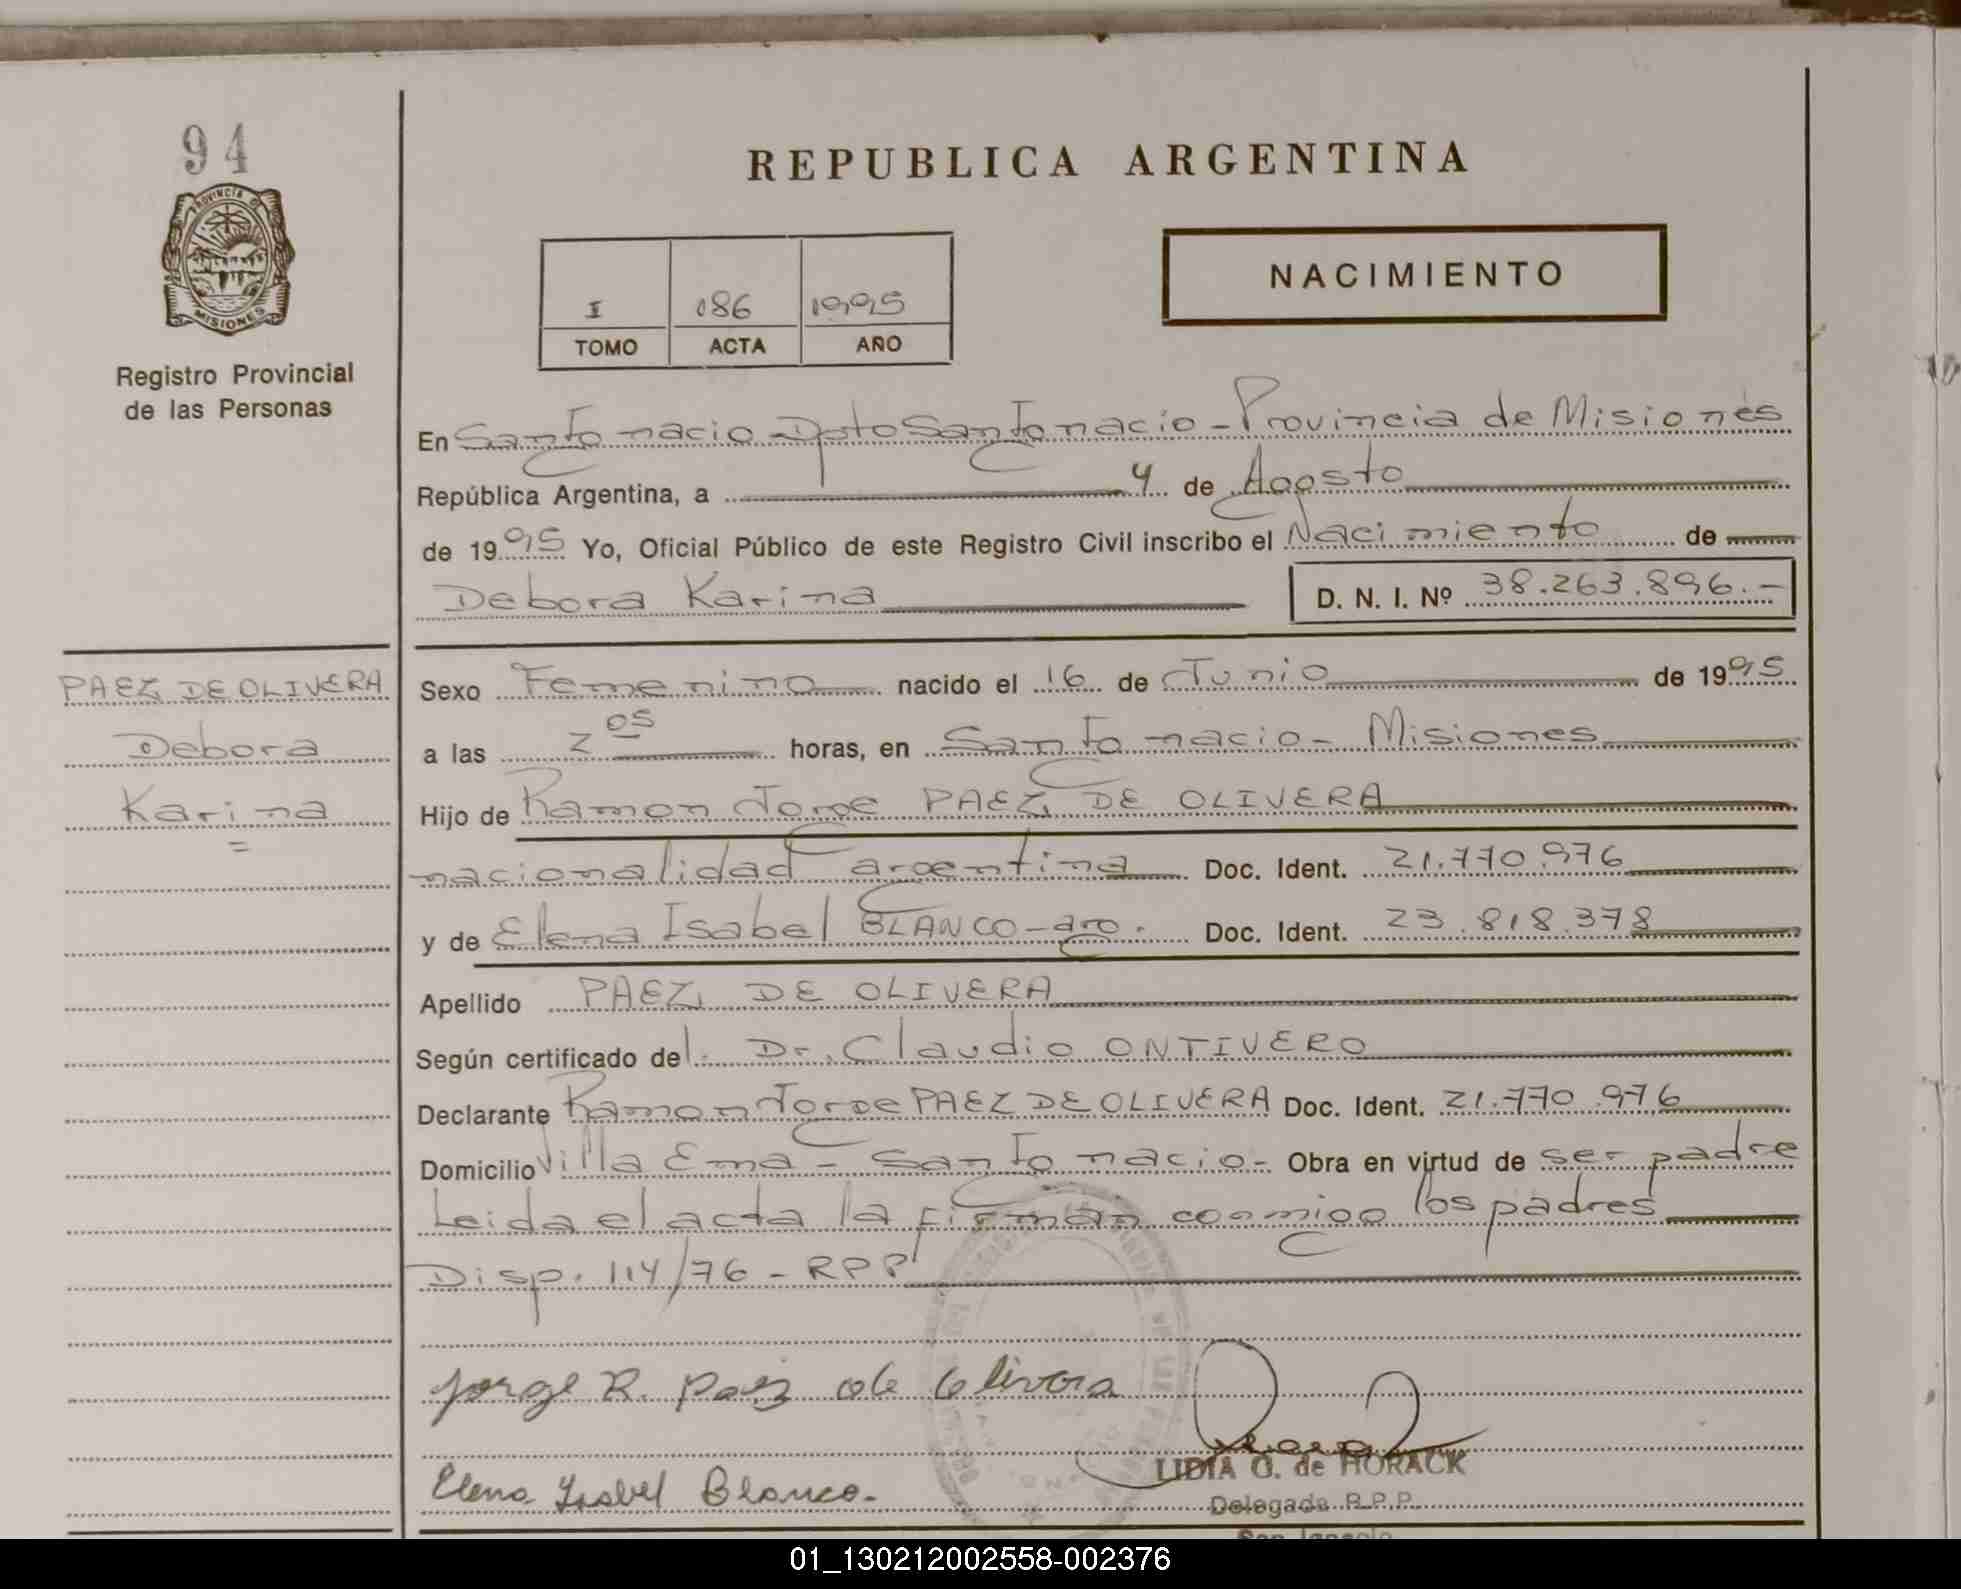 94
PROVINCIA DE
MISIONES
Registro Provincial
de las Personas
REPUBLICA ARGENTINA
NACIMIENTO
I 086 1995
TOMO ACTA AÑO
En San Ignacio Dpto San Ignacio - Provincia de Misiones
República Argentina, a 4 de Agosto
de 1995 Yo, Oficial Público de este Registro Civil inscribo el Nacimiento de
Debora Karina D. N. I. Nº 38.263.896.-
PAEZ DE OLIVERA
Debora
Karina
Sexo Femenino nacido el 16 de Junio de 1995
a las 2 05 horas, en San Ignacio - Misiones
Hijo de Ramon Jorge PAEZ DE OLIVERA
nacionalidad argentina Doc. Ident. 21.770.976
y de Elena Isabel BLANCO - arg. Doc. Ident. 23.818.378
Apellido PAEZ DE OLIVERA
Según certificado del Dr. Claudio ONTIVERO
Declarante Ramon Jorge PAEZ DE OLIVERA Doc. Ident. 21.770.976
Domicilio Villa Ema - San Ignacio - Obra en virtud de ser padre
Leida el acta la firman conmigo los padres
Disp. 114/76 - RPP
Jorge R. Paez de Olivera
Elena Ysabel Blanco.
LIDIA G. de HORACK
Delegada R.P.P.
San Ignacio
01_130212002558-002376